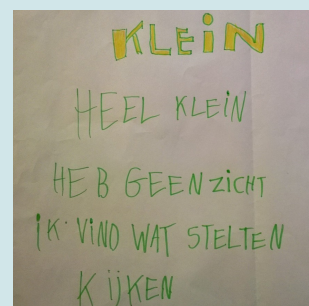 KLEIN
HEEL KLEIN
HEB GEEN ZICHT
iK VIND WAT STELTEN
KIJKEN